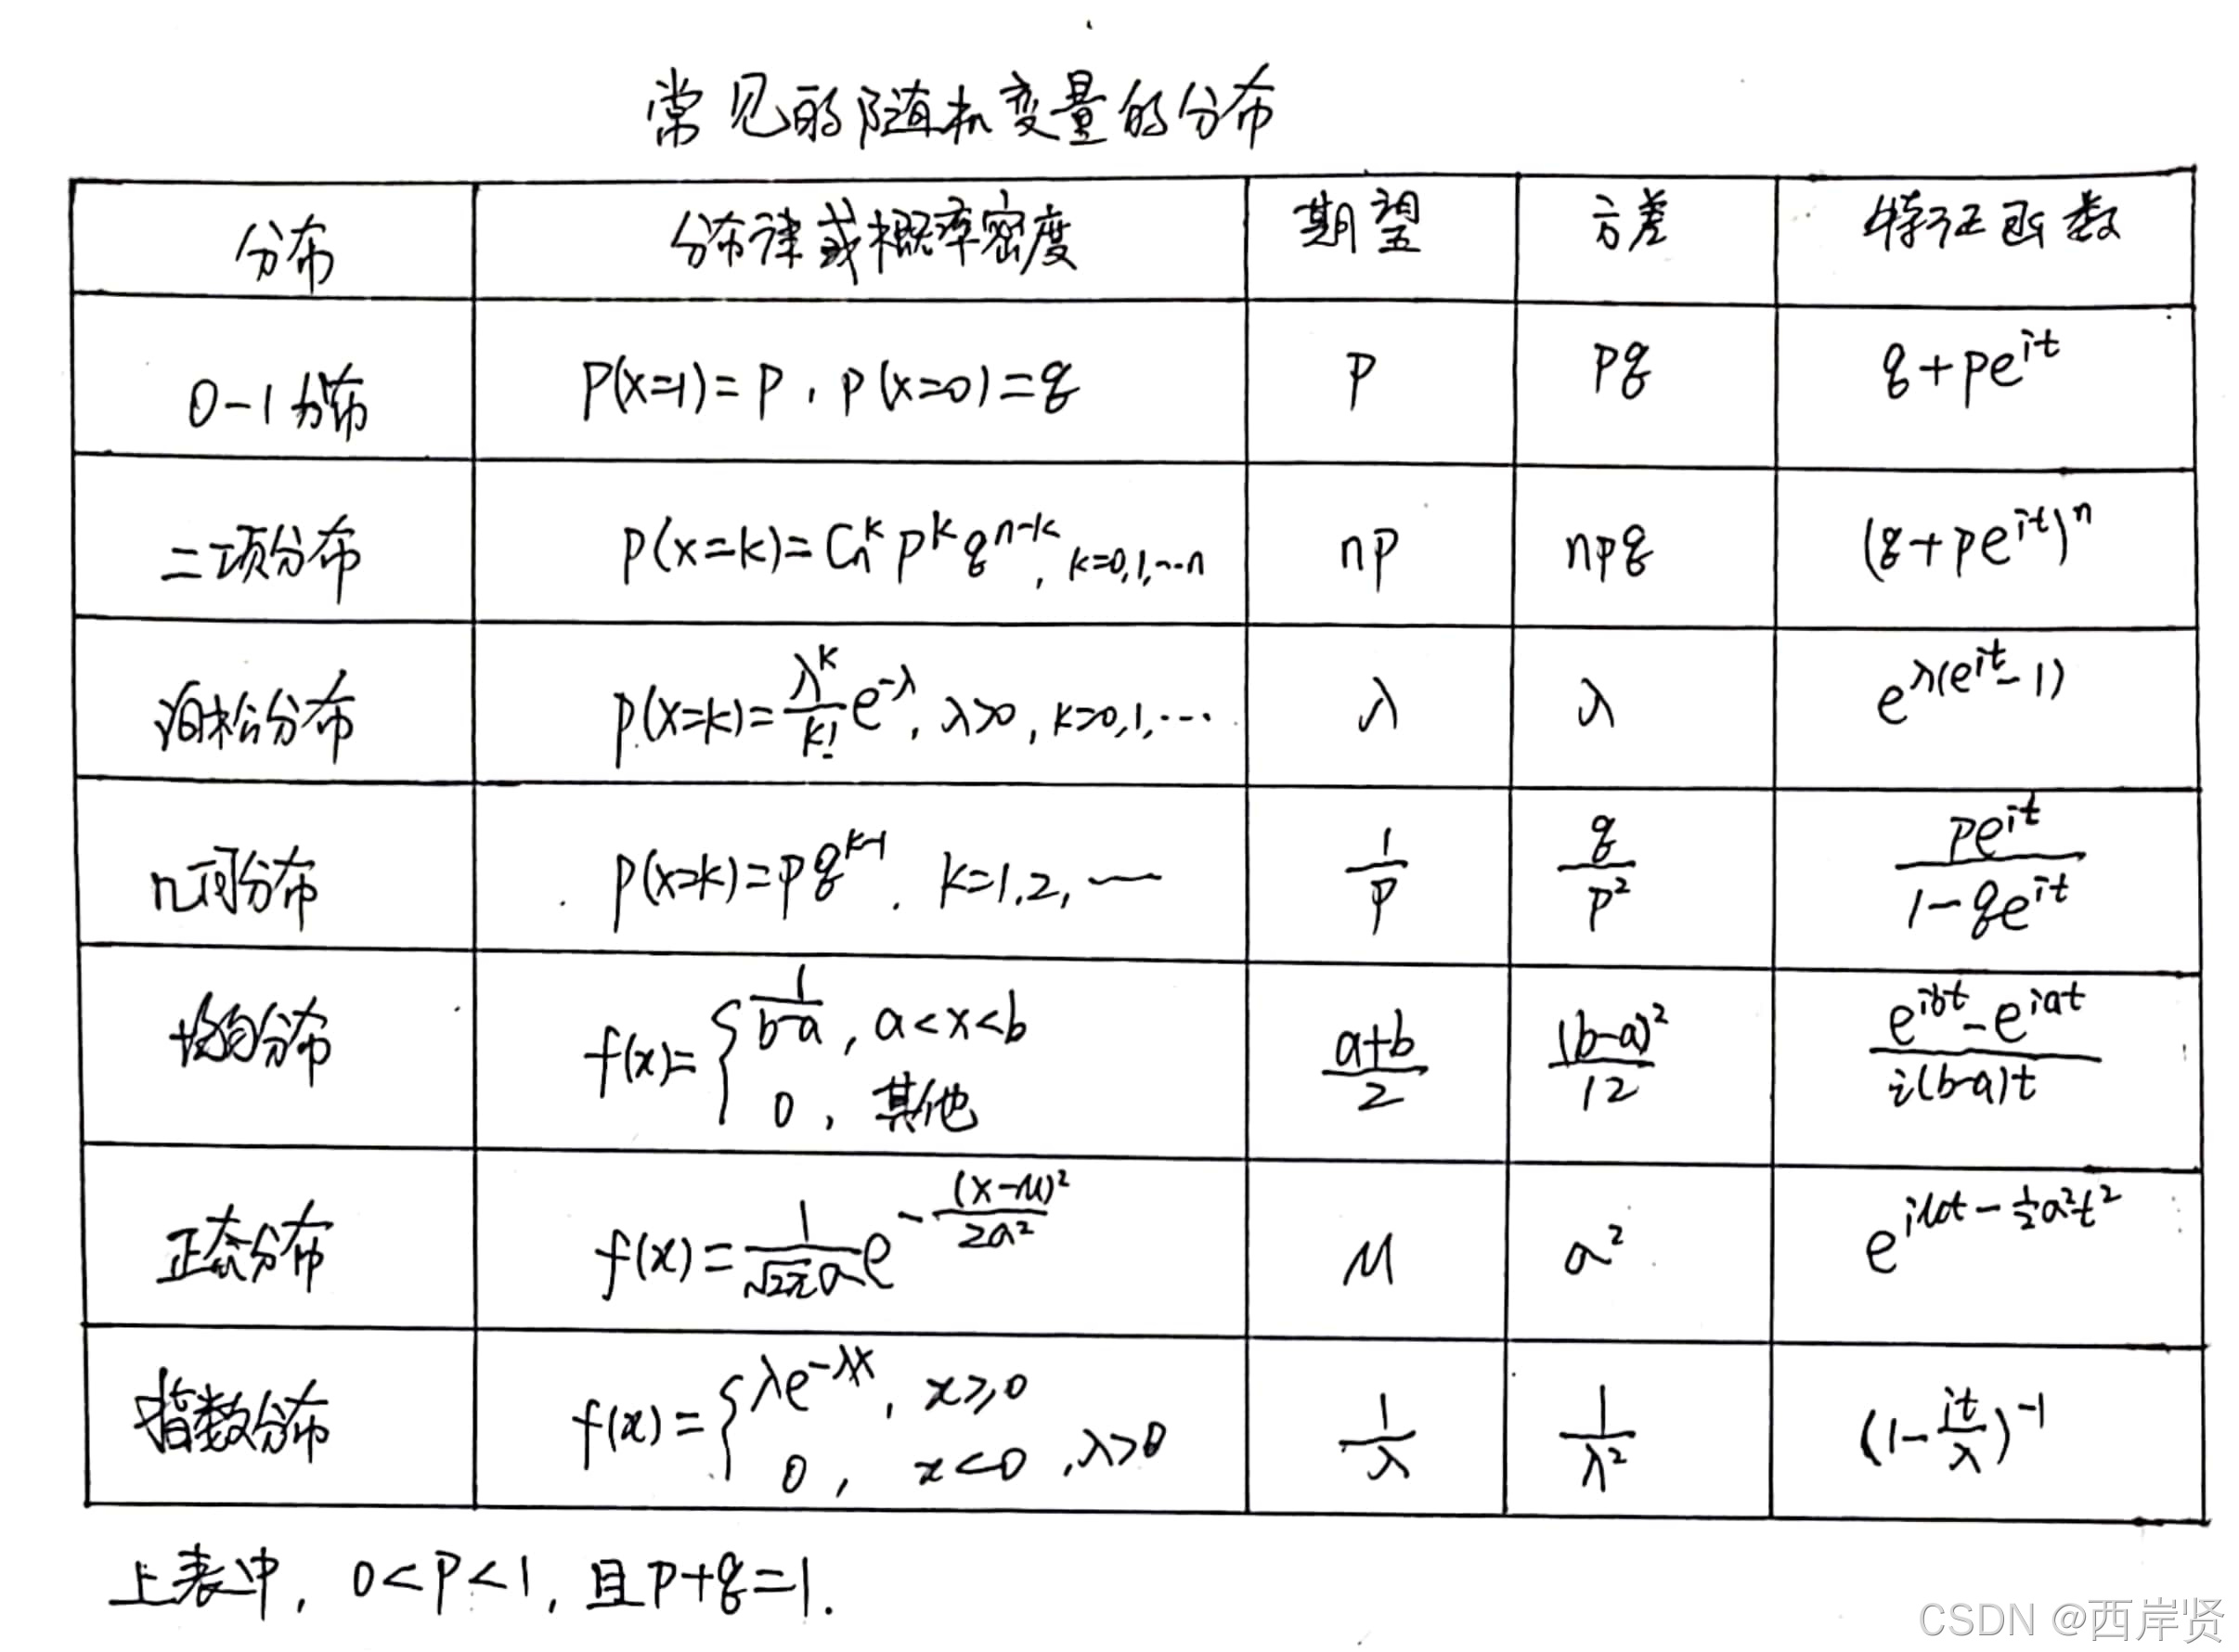 常见的随机变量的分布
分布 分布律或概率密度 期望 方差 特征函数
0-1分布 P(x=1)=P, P(x=0)=q P pq q+pe^{it}
二项分布 P(x=k)=C_n^k p^k q^{n-k}, k=0,1,…n np npq (q+pe^{it})^n
泊松分布 P(x=k)=\frac{λ^k}{k!}e^{-λ}, λ>0, k=0,1,… λ λ e^{λ(e^{it}-1)}
几何分布 P(x=k)=pq^{k-1}, k=1,2,… \frac{1}{P} \frac{q}{P^2} \frac{pe^{it}}{1-qe^{it}}
均匀分布 f(x)={\frac{1}{b-a}, a<x<b \frac{a+b}{2} \frac{(b-a)^2}{12} \frac{e^{ibt}-e^{iat}}{i(b-a)t}
0, 其他
正态分布 f(x)=\frac{1}{\sqrt{2π}a}e^{-\frac{(x-μ)^2}{2a^2}} μ a^2 e^{iμt-\frac{1}{2}a^2t^2}
指数分布 f(x)={λe^{-λx}, x≥0 \frac{1}{λ} \frac{1}{λ^2} (1-\frac{it}{λ})^{-1}
0, x<0, λ>0
上表中, 0<P<1, 且P+q=1.
CSDN @西岸贤